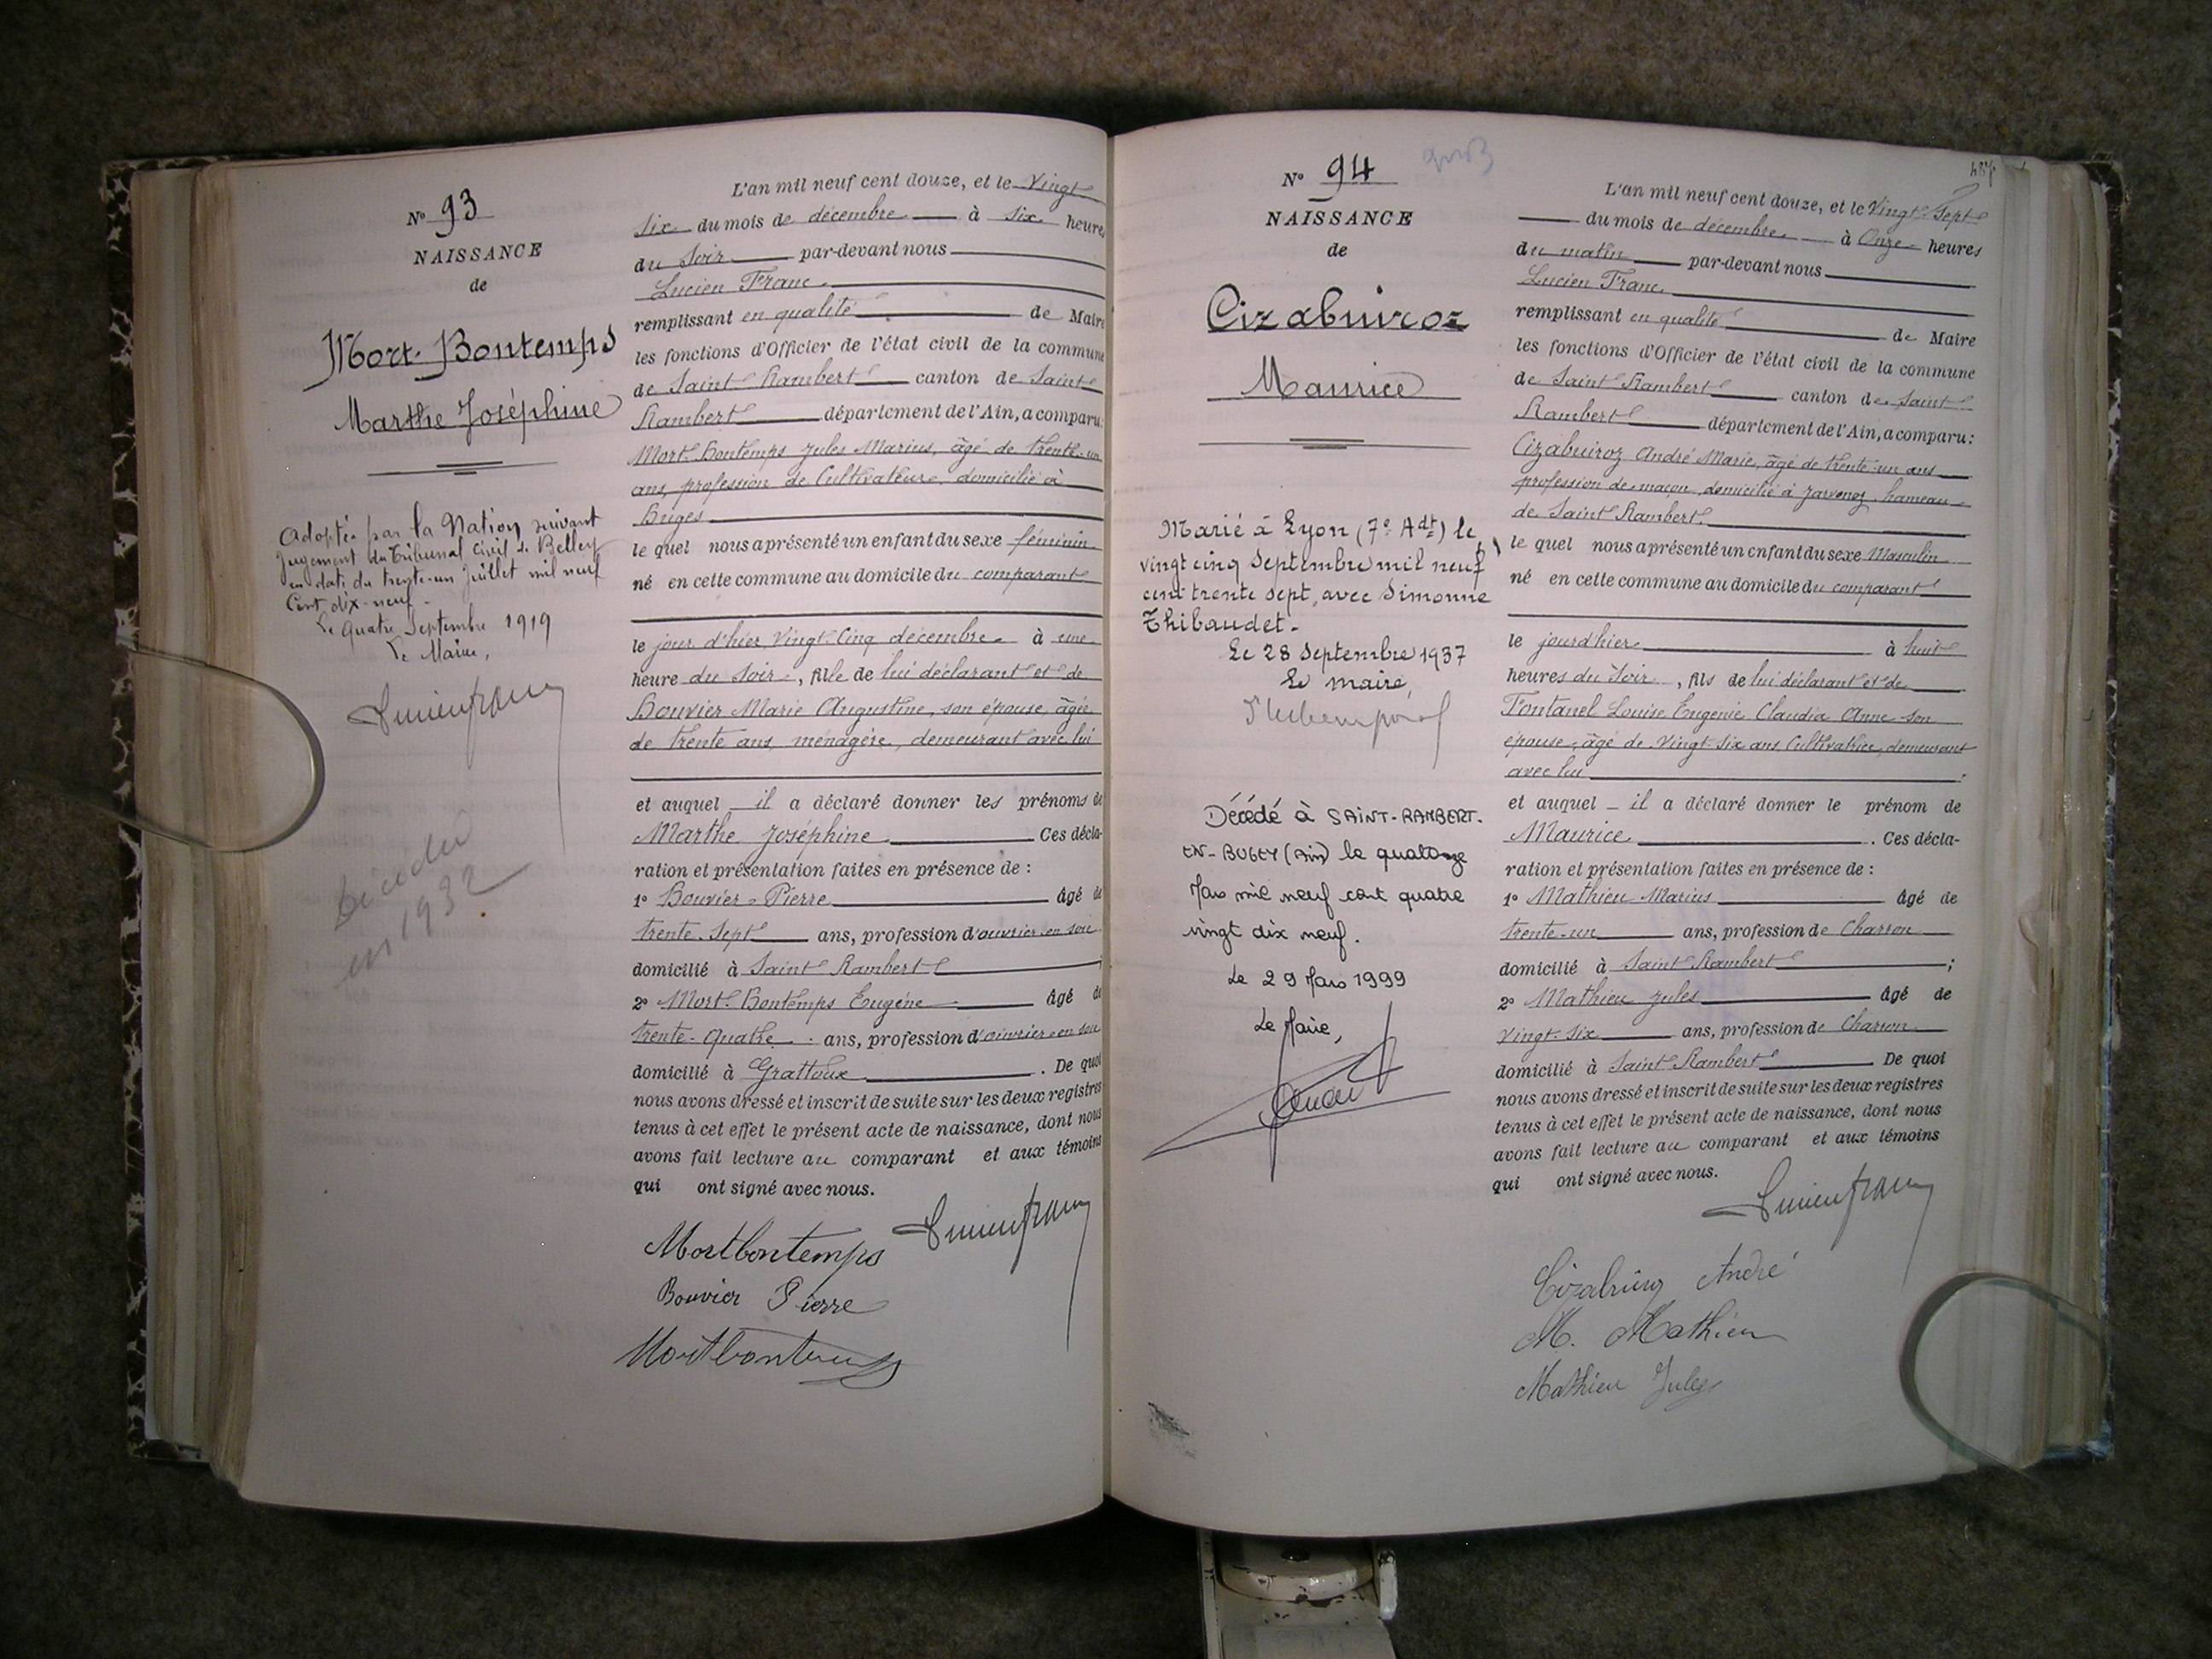 N° 93
NAISSANCE
de
Mort-Bontemps
Marthe Joséphine
Adoptée par la Nation suivant
Jugement du Tribunal Civil de Belley
en date du trente-un Juillet mil neuf
Cent dix-neuf -
Le Quatre Septembre 1919
Le Maire,
Lucien franc
décédée
en 1932
L'an mil neuf cent douze, et le Vingt
Six du mois de décembre à Six heures
du Soir par-devant nous
Lucien Franc
remplissant en qualité de Maire
les fonctions d'Officier de l'état civil de la commune
de Saint Rambert canton de Saint
Rambert département de l'Ain, a comparu:
Mort-Bontemps Jules Marius, âgé de trente-un
ans, profession de Cultivateur, domicilié à
Buges
le quel nous a présenté un enfant du sexe féminin
né en cette commune au domicile du comparant
le jour d'hier, Vingt-Cinq décembre à une
heure du Soir, fille de lui déclarant et de
Bouvier Marie Augustine, son épouse, âgée
de trente ans, ménagère, demeurant avec lui
et auquel il a déclaré donner les prénoms de
Marthe Joséphine Ces décla-
ration et présentation faites en présence de :
1° Bouvier Pierre âgé de
trente-Sept ans, profession d'ouvrier en soie
domicilié à Saint Rambert ;
2° Mort-Bontemps Eugène âgé de
trente-Quatre ans, profession d'ouvrier en soie
domicilié à Grattoux . De quoi
nous avons dressé et inscrit de suite sur les deux registres
tenus à cet effet le présent acte de naissance, dont nous
avons fait lecture au comparant et aux témoins
qui ont signé avec nous.
Lucien franc
Mortbontemps
Bouvier Pierre
Mortbontemps
N° 94
NAISSANCE
de
Cizabuiroz
Maurice
Marié à Lyon (7e Adt) le
vingt cinq Septembre mil neuf
cent trente sept, avec Simonne
Thibaudet.
Le 28 Septembre 1937
Le maire,
Décédé à SAINT-RAMBERT-
EN-BUGEY (Ain) le quatorze
Mars mil neuf cent quatre
vingt dix neuf.
Le 29 Mars 1999
Le Maire,
L'an mil neuf cent douze, et le Vingt-Sept
du mois de décembre à Onze heures
du matin par-devant nous
Lucien Franc
remplissant en qualité de Maire
les fonctions d'Officier de l'état civil de la commune
de Saint Rambert canton de Saint
Rambert département de l'Ain, a comparu:
Cizabuiroz André Marie, âgé de trente-un ans
profession de maçon, domicilié à Javornoz, hameau
de Saint Rambert
le quel nous a présenté un enfant du sexe Masculin
né en cette commune au domicile du comparant
le jour d'hier à huit
heures du Soir, fils de lui déclarant et de
Fontanel Louise Eugénie Claudia Anne son
épouse, âgé de Vingt-Six ans Cultivatrice, demeurant
avec lui ;
et auquel il a déclaré donner le prénom de
Maurice . Ces décla-
ration et présentation faites en présence de :
1° Mathieu Marius âgé de
trente-un ans, profession de Charron
domicilié à Saint Rambert ;
2° Mathieu Jules âgé de
vingt-six ans, profession de Charron
domicilié à Saint Rambert De quoi
nous avons dressé et inscrit de suite sur les deux registres
tenus à cet effet le présent acte de naissance, dont nous
avons fait lecture au comparant et aux témoins
qui ont signé avec nous.
Lucien franc
Cizabuiroz André
M. Mathieu
Mathieu Jules